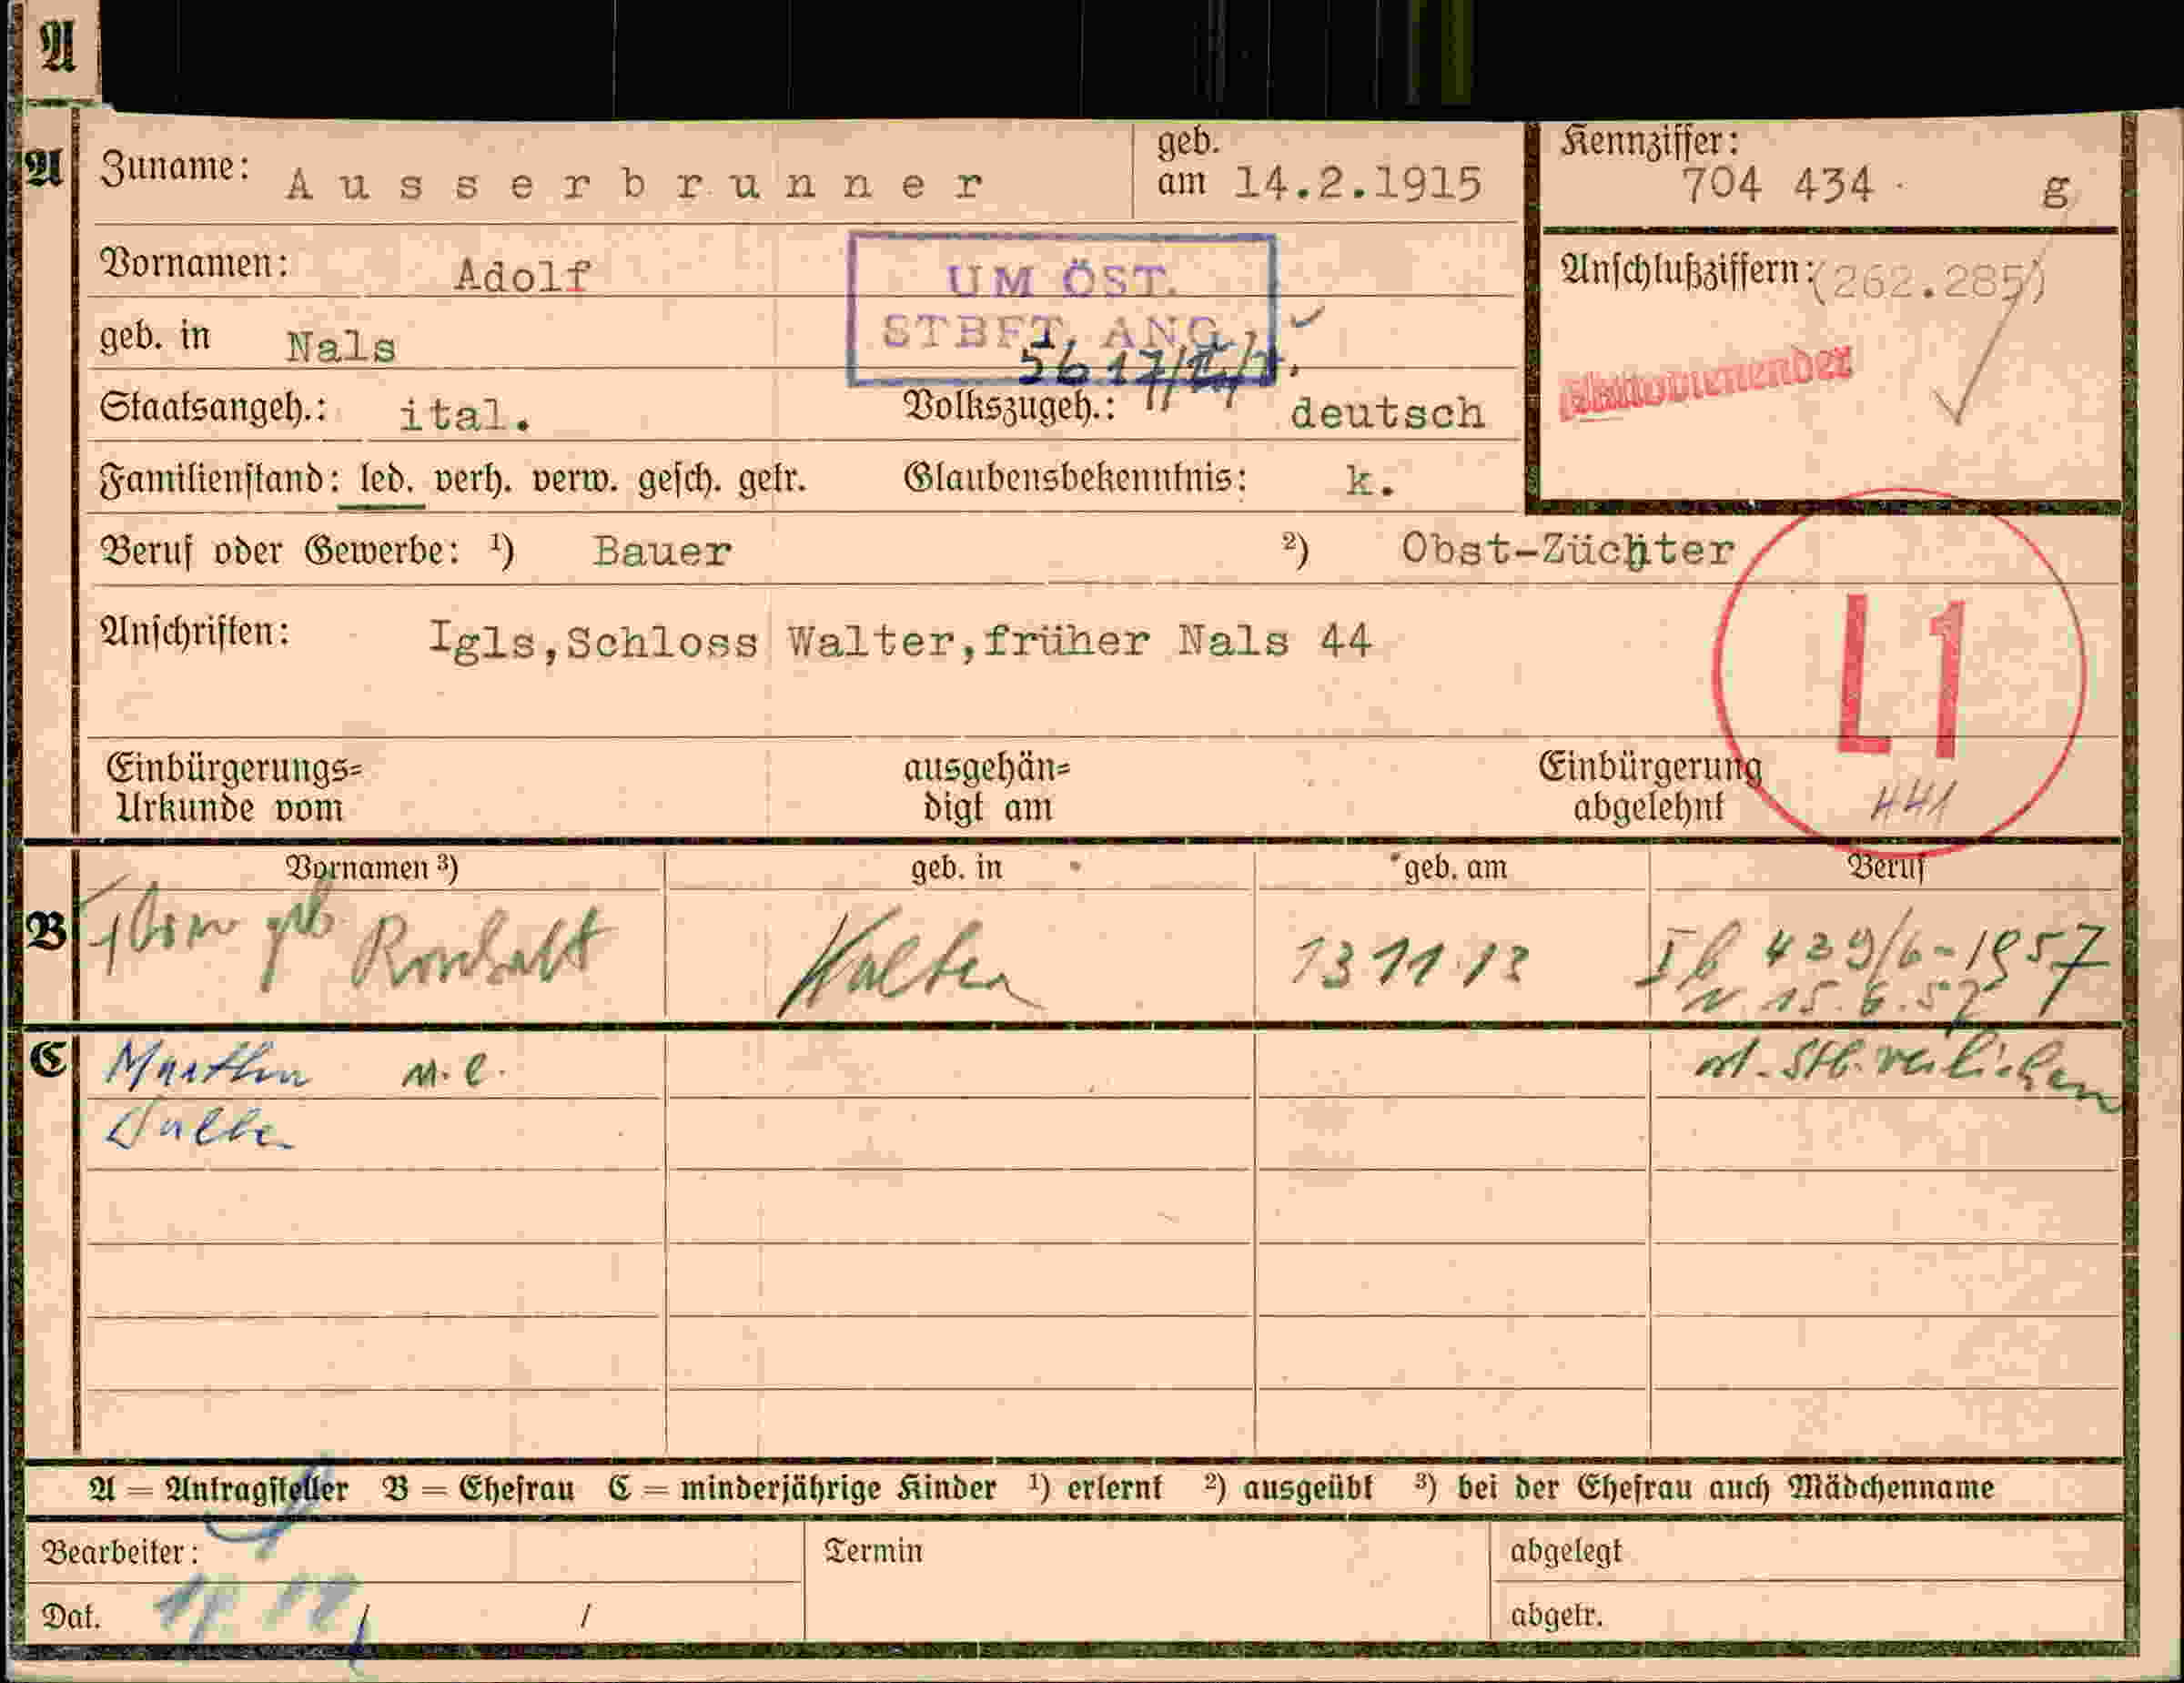 A
A
Zuname: Ausserbrunner
geb. am 14.2.1915
Kennziffer: 704 434 g
Vornamen: Adolf
UM ÖST.
STBFT. ANG.
5617/
Anschlußziffern: (262.285)
geb. in Nals
Staatsangeh.: ital.
Volkszugeh.: deutsch
Familienstand: led. verh. verw. gesch. getr.
Glaubensbekenntnis: k.
Beruf oder Gewerbe: ¹) Bauer ²) Obst-Züchter
Anschriften: Igls,Schloss Walter,früher Nals 44
L1
441
Einbürgerungs=
Urkunde vom
ausgehän=
digt am
Einbürgerung
abgelehnt
Vornamen ³) geb. in geb. am Beruf
B geb 13 11 13 439/6-1957
15.6.57
C Martha m.l.
Walter
A = Antragsteller B = Ehefrau C = minderjährige Kinder ¹) erlernt ²) ausgeübt ³) bei der Ehefrau auch Mädchenname
Bearbeiter:
Termin
abgelegt
Dat. / /
abgetr.